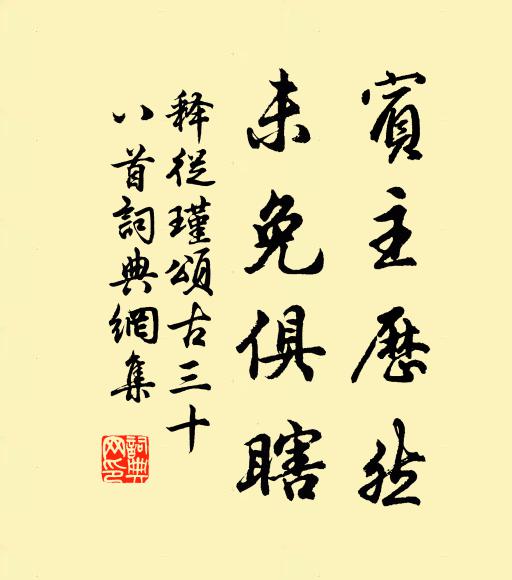 賓主歷然
未免俱瞎
释從瑾頌古三十
八首詞典網集
詞典网印